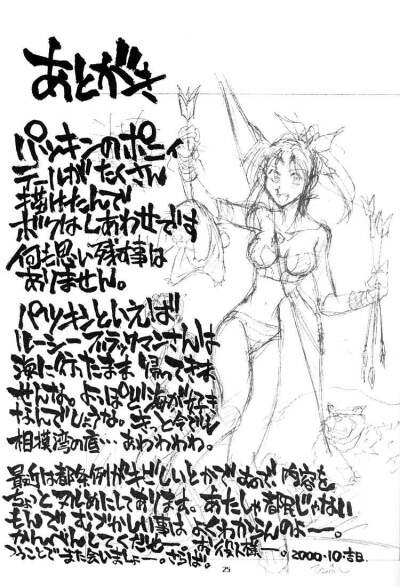 あとがき
パツキンのポニィ
テールがたくさん
描けたんで
ボクはしあわせです
何も思い残す事は
ありません。
パツキンといえば
ルーシー・ブラックマンさんは
海に行ったまま帰ってきま
せんな。よっぽど海が好き
なんでしょうな。きっと今でも
相模湾の底…あわわわわ。
最近は都条例がキビしいとかでなあで内容を
ちょっとヌルめにしてあります。あたしゃ都民じゃない
もんでむづかしい事はよくわからんのよー。
かんべんしてくだせー、お役人様ー。
つうことでまた会いましょー。さらば。
2000.10.吉日
25